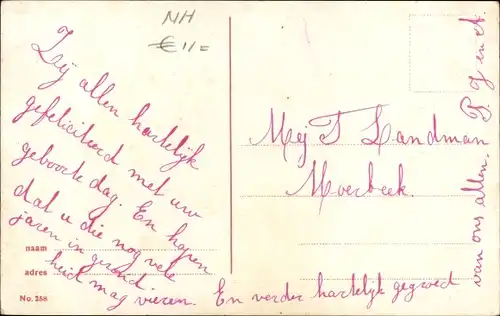 NH
€ 11=
Zij allen hartelijk
gefeliciteerd met uw
geboorte dag. En hopen
dat u die nog vele
jaren in gezond
heid mag vieren. En verder hartelijk gegroed
van ons allen. P. J en A.
Mej T Landman
Moerbeek.
naam
adres
No. 288